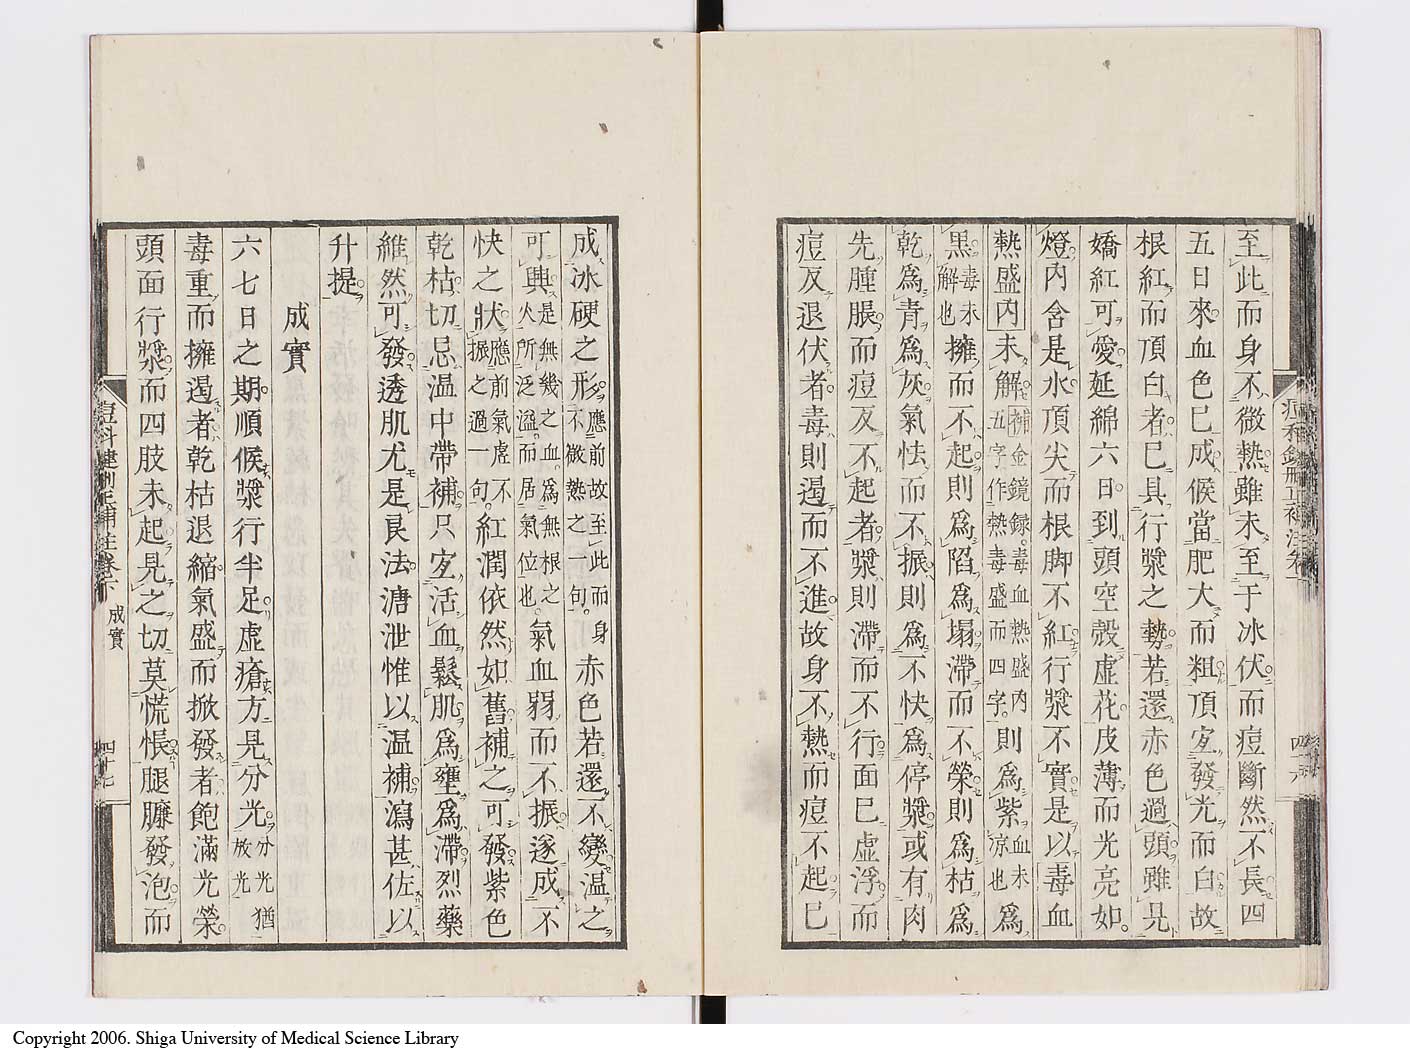 至此而身不微熱雖未至于冰伏而痘斷然不長四
五日來血色已成候當肥大而粗頂宜發光而白故
根紅而頂白者已具行漿之勢若還赤色過頭雖見
嬌紅可愛延綿六日到頭空殼虛花皮薄而光亮如
燈內含是水頂尖而根脚不紅行漿不實是以毒血
熱盛內未解補金鏡錄毒血熱盛內五字作熱毒盛而四字則為紫血未凉也為
黑毒未解也擁而不起則為陷為塌滯而不榮則為枯為
乾為青為灰氣怯而不振則為不快為停漿或有肉
先腫脹而痘反不起者漿則滯而不行面已虛浮而
痘反退伏者毒則遏而不進故身不熱而痘不起已
成冰硬之形應前故至此而身不微熱之句赤色若還不變溫之
可興是無幾之血為無根之火所泛溢而居氣位也氣血弱而不振遂成不
快之狀應前氣虛不振之過一句紅潤依然如舊補之可發紫色
乾枯切忌溫中帶補只宜活血鬆肌為壅為滯烈藥
維然可發透肌尤是良法溏泄惟以溫補瀉甚佐以
升提
成實
六七日之期順候漿行半足虛瘡方見分光分光猶放光
毒重而擁遏者乾枯退縮氣盛而掀發者飽滿光榮
頭面行漿而四肢未起見之切莫慌悵腿臁發泡而
痘科鍵刪正補註卷下 成實 四十七
四十六
Copyright 2006. Shiga University of Medical Science Library